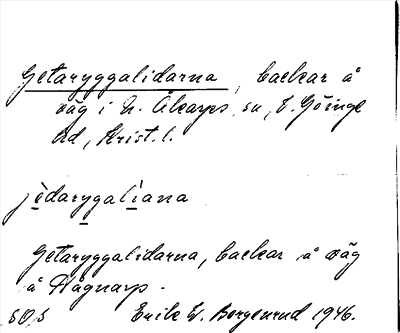 Getaryggalidarna, backar å
väg i N. Åkarps sn, V. Göinge
hd, Krist. l.
jèdarygalìana
Getaryggalidarna, backar å väg
å Hågnarp.
50,5 Erik W. Borgenrud 1946.